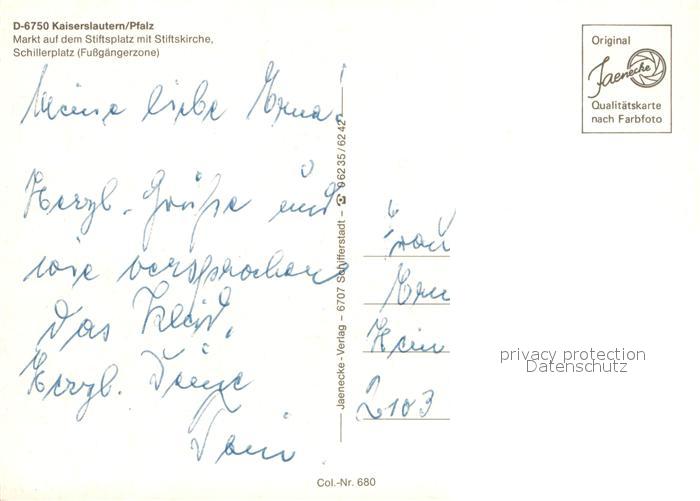 D-6750 Kaiserslautern/Pfalz
Markt auf dem Stiftsplatz mit Stiftskirche,
Schillerplatz (Fußgängerzone)
Original
Jaenecke
Qualitätskarte
nach Farbfoto
Meine liebe Erna!
Herzl. Grüße und
wie versprochen
das Kleid.
Herzl. Deine
Toni
Jaenecke-Verlag – 6707 Schifferstadt – ☎ 06235/6242
Frau
Ern
Hein
2103
privacy protection
Datenschutz
Col.-Nr. 680